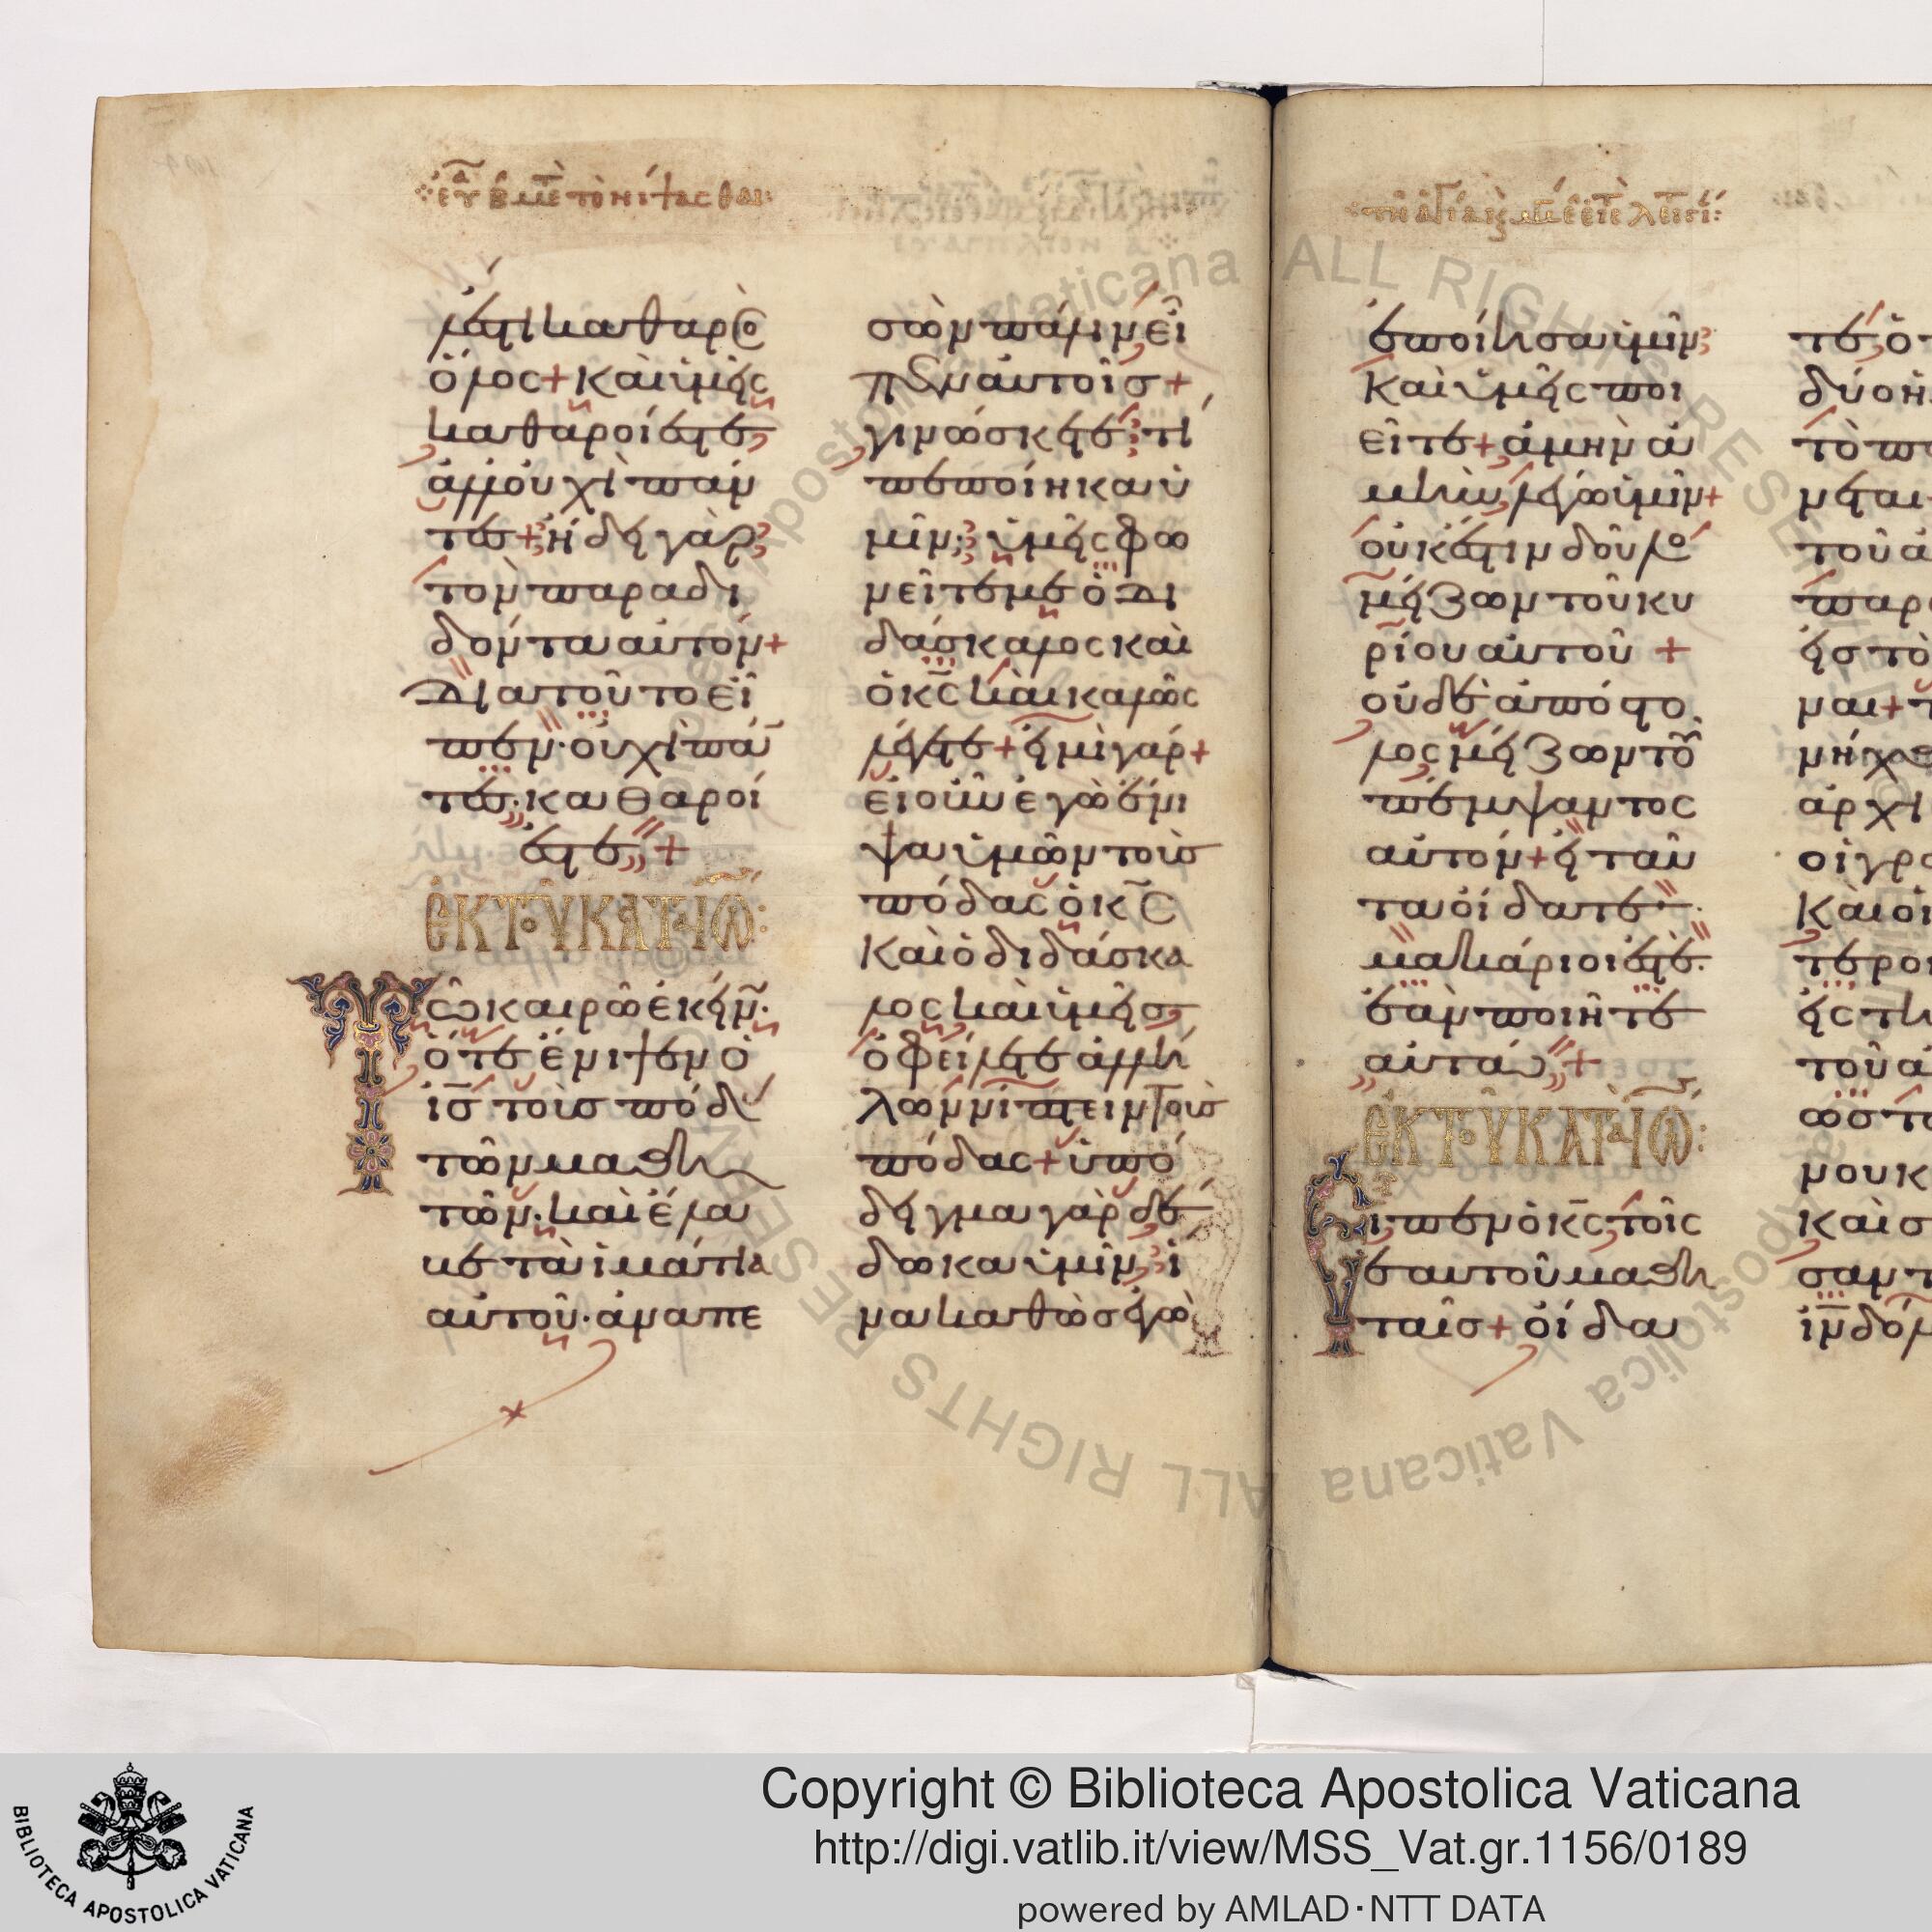 εὐα β μετὰ τὸ νίψασθαι
λ' ἔστι καθαρὸς
ὅλος + καὶ ὑμεῖς
καθαροί ἐστε
ἀλλ' οὐχὶ πάν
τες + ἤδει γὰρ
τὸν παραδι
δόντα αὐτόν +
διατοῦτο εἶ
πεν· οὐχὶ πάν
τες· καθαροί
ἐστε +
ἐκ τοῦ κατὰ Ἰω:
Τῶ καιρῶ ἐκείν
ὅτε ἔνιψεν ὁ
ις τοὺς πόδ
τῶν μαθη
τῶν· καὶ ἔλα
βε τὰ ἱμάτια
αὐτοῦ· ἀναπε
σὼν πάλιν εἶ
πεν αὐτοῖς +
γινώσκετε· τί
πεποίηκα ὑ
μῖν· ὑμεῖς φω
νεῖτέ με ὁ δι
δάσκαλος καὶ
ὁ κς καὶ καλῶς
λέγετε + εἰμὶ γάρ +
εἰ οὖν ἐγὼ ἔνι
ψα ὑμῶν τοὺς
πόδας ὁ κς
καὶ ὁ διδάσκα
λος καὶ ὑμεῖς
ὀφείλετε ἀλλή
λων νίπτειν τοὺς
πόδας + ὑπό
δειγμα γὰρ δέ
δωκα ὑμῖν· ἵ
να καθὼς ἐγὼ
ἐποίησα ὑμῖν
καὶ ὑμεῖς ποι
εῖτε + ἀμὴν ἀ
μὴν λέγω ὑμῖν +
οὐκ ἔστιν δοῦλο
μείζων τοῦ κυ
ρίου αὐτοῦ +
οὐδὲ ἀπόστο
λος μείζων τοῦ
πέμψαντος
αὐτόν + εἰ ταῦ
τα οἴδατε·
μακάριοί ἐστε·
ἐὰν ποιῆτε
αὐτά +
ἐκ τοῦ κατὰ Ἰω:
Εἶπεν ὁ κς τοῖς
ἑαυτοῦ μαθη
ταῖς + οἴδα
τε ὅ
δύο ἡ
τὸ π
νεται
τοῦ ἀ
παρ
εἰς τὸ
ναι + τ
νήχθ
ἀρχι
οἱ γρ
καὶ οἱ
τεροι
εἰς τὴ
τοῦ ἀ
ωσ το
μου κ
καὶ σ
σαν τ
ιν δόλ
Copyright © Biblioteca Apostolica Vaticana
http://digi.vatlib.it/view/MSS_Vat.gr.1156/0189
powered by AMLAD·NTT DATA
BIBLIOTECA APOSTOLICA VATICANA